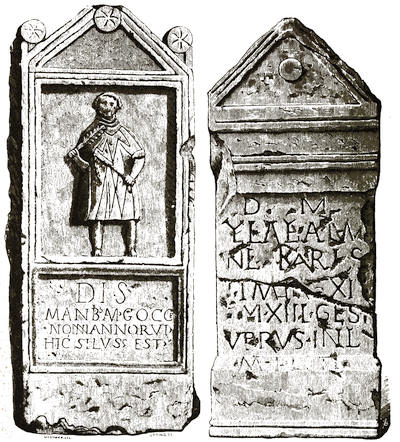 DIS
MANB·M·COCC
NONIANNORVI
HIC SILVSS EST
D M
YLAE·ALVM
NE KARIS
IMI XI
M XIII GES
VPRVS INL